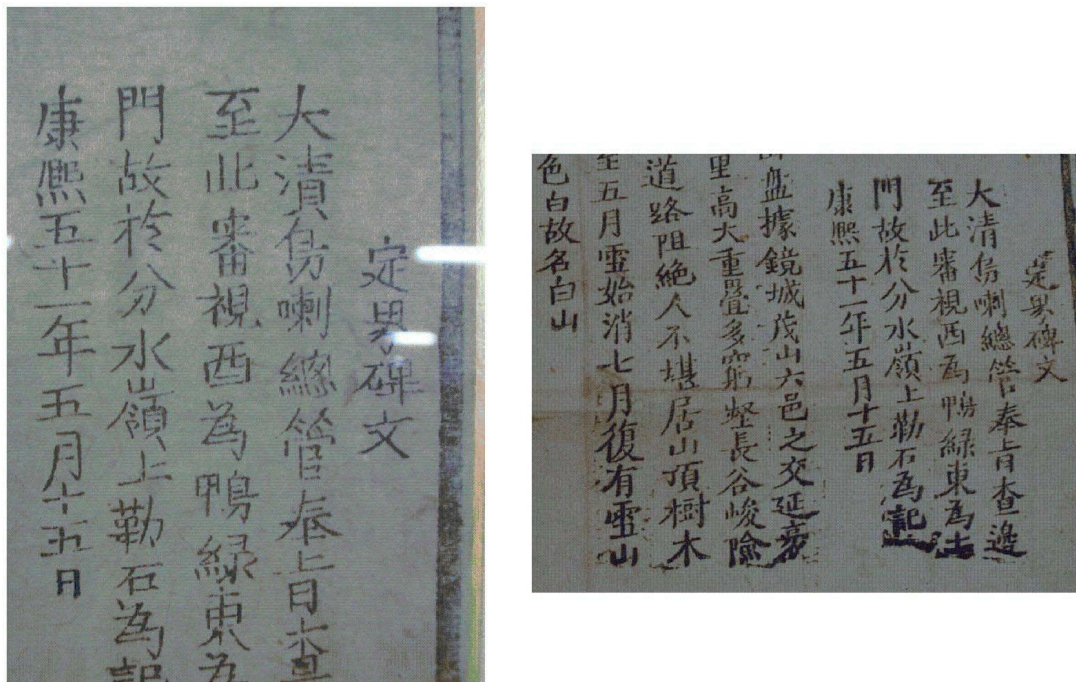 定界碑文
大清烏喇總管奉旨查
至此審視西為鴨綠東為
門故於分水嶺上勒石為記
康熙五十一年五月十五日
定界碑文
大清烏喇總管奉旨查邊
至此審視西為鴨綠東為土
門故於分水嶺上勒石為記
康熙五十一年五月十五日
山盤據鏡城茂山六邑之交延袤
里高大重疊多窮壑長谷峻險
道路阻絶人不堪居山頂樹木
至五月雪始消七月復有雪山
色白故名白山